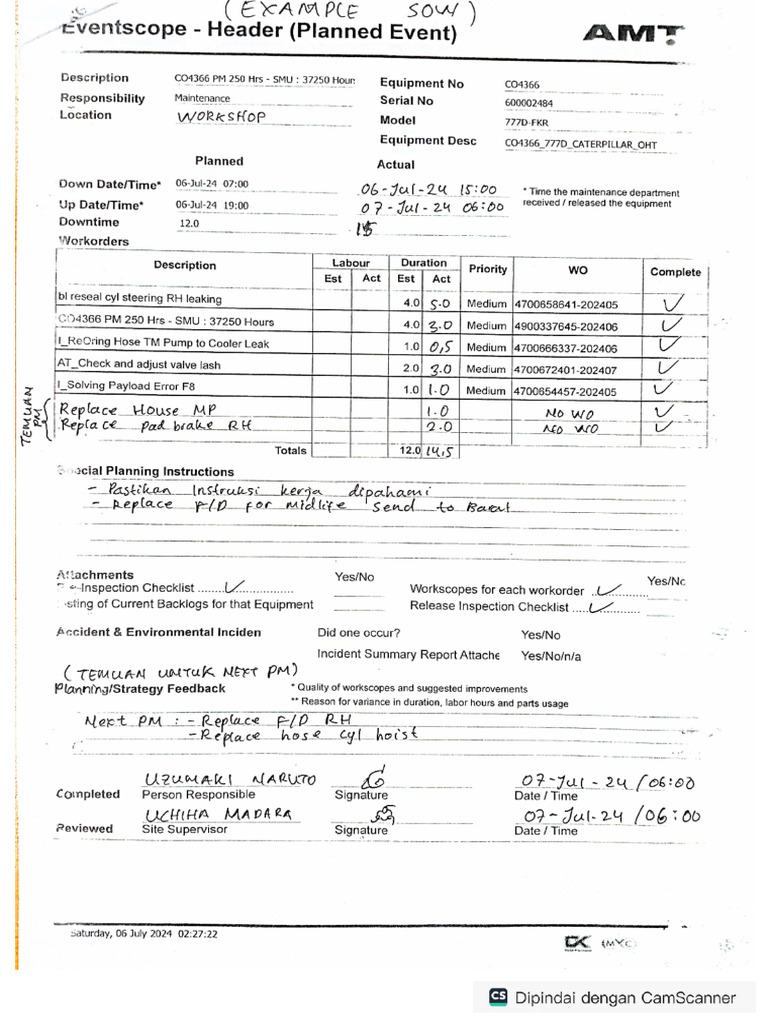 (EXAMPLE SOW)
Eventscope - Header (Planned Event)
AMT
Description CO4366 PM 250 Hrs - SMU : 37250 Hour
Equipment No CO4366
Responsibility Maintenance
Serial No 600002484
Location WORKSHOP
Model 777D-FKR
Equipment Desc CO4366_777D_CATERPILLAR_OHT
Planned Actual
Down Date/Time* 06-Jul-24 07:00 06-Jul-24 15:00
* Time the maintenance department
received / released the equipment
Up Date/Time* 06-Jul-24 19:00 07-Jul-24 06:00
Downtime 12.0 15
Workorders
Description Labour Duration Priority WO Complete
Est Act Est Act
bl reseal cyl steering RH leaking 4.0 5.0 Medium 4700658641-202405 ✓
CO4366 PM 250 Hrs - SMU : 37250 Hours 4.0 3.0 Medium 4900337645-202406 ✓
I_ReOring Hose TM Pump to Cooler Leak 1.0 0,5 Medium 4700666337-202406 ✓
AT_Check and adjust valve lash 2.0 3.0 Medium 4700672401-202407 ✓
I_Solving Payload Error F8 1.0 1.0 Medium 4700654457-202405 ✓
TEMUAN PM
Replace House MP 1.0 NO WO ✓
Replace pad brake RH 2.0 NO WO ✓
Totals 12.0 14,5
Special Planning Instructions
- Pastikan Instruksi kerja dipahami
- Replace F/D for midlife send to
Attachments Yes/No
-Inspection Checklist ........✓..............
Workscopes for each workorder ..✓.......... Yes/No
sting of Current Backlogs for that Equipment
Release Inspection Checklist ....✓..........
Accident & Environmental Inciden Did one occur? Yes/No
Incident Summary Report Attache Yes/No/n/a
(TEMUAN UNTUK NEXT PM)
Planning/Strategy Feedback
* Quality of workscopes and suggested improvements
** Reason for variance in duration, labor hours and parts usage
Next PM : - Replace F/D RH
- Replace hose cyl hoist
UZUMAKI NARUTO 07-Jul-24 /06:00
Completed Person Responsible Signature Date / Time
UCHIHA MADARA 07-Jul-24 /06:00
Reviewed Site Supervisor Signature Date / Time
Saturday, 06 July 2024 02:27:22
CS Dipindai dengan CamScanner